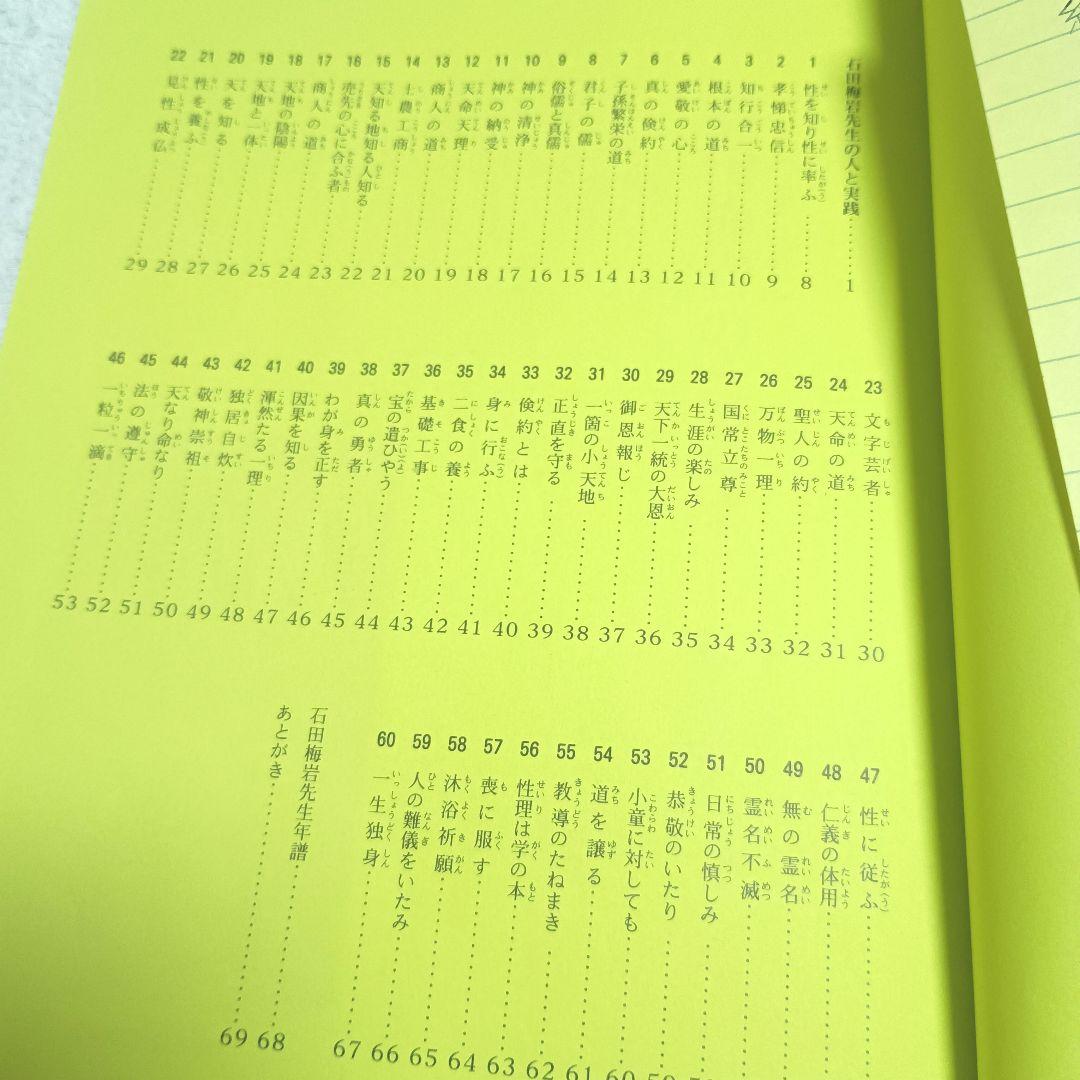 石田梅岩先生の人と実践……1
1 性を知り性に率ふ……8
2 孝悌忠信……9
3 知行合一……10
4 根本の道……11
5 愛敬の心……12
6 真の倹約……13
7 子孫繁栄の道……14
8 君子の儒……15
9 俗儒と真儒……16
10 神の清浄……17
11 神の納受……18
12 天命天理……19
13 商人の道……20
14 士農工商……21
15 天知る地知る人知る……22
16 売先の心に合ふ者……23
17 商人の道……24
18 天地の陰陽……25
19 天地と一体……26
20 天を知る……27
21 性を養ふ……28
22 見性成仏……29
23 文字芸者……30
24 天命の道……31
25 聖人の約……32
26 万物一理……33
27 国常立尊……34
28 生涯の楽しみ……35
29 天下一統の大恩……36
30 御恩報じ……37
31 一箇の小天地……38
32 正直を守る……39
33 倹約とは……40
34 身に行ふ……41
35 二食の養……42
36 基礎工事……43
37 宝の遣ひやう……44
38 真の勇者……45
39 わが身を正す……46
40 因果を知る……47
41 渾然たる一理……48
42 独居自炊……49
43 敬神崇祖……50
44 天なり命なり……51
45 法の遵守……52
46 一粒一滴……53
47 性に従ふ
48 仁義の体用
49 無の霊名
50 霊名不滅
51 日常の慎しみ
52 恭敬のいたり
53 小童に対しても……60
54 道を譲る……61
55 教導のたねまき……62
56 性理は学の本……63
57 喪に服す……64
58 沐浴祈願……65
59 人の難儀をいたみ……66
60 一生独身……67
石田梅岩先生年譜……68
あとがき……69